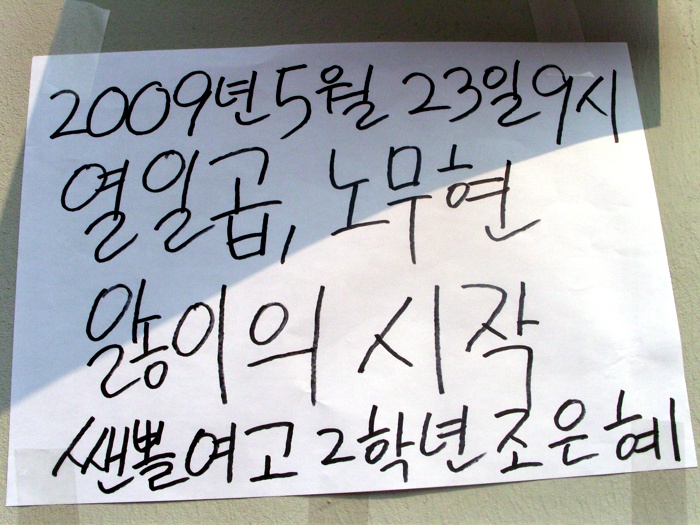 2009년 5월 23일 9시
열일곱, 노무현
앓이의 시작
쌘뽈여고 2학년 조은혜